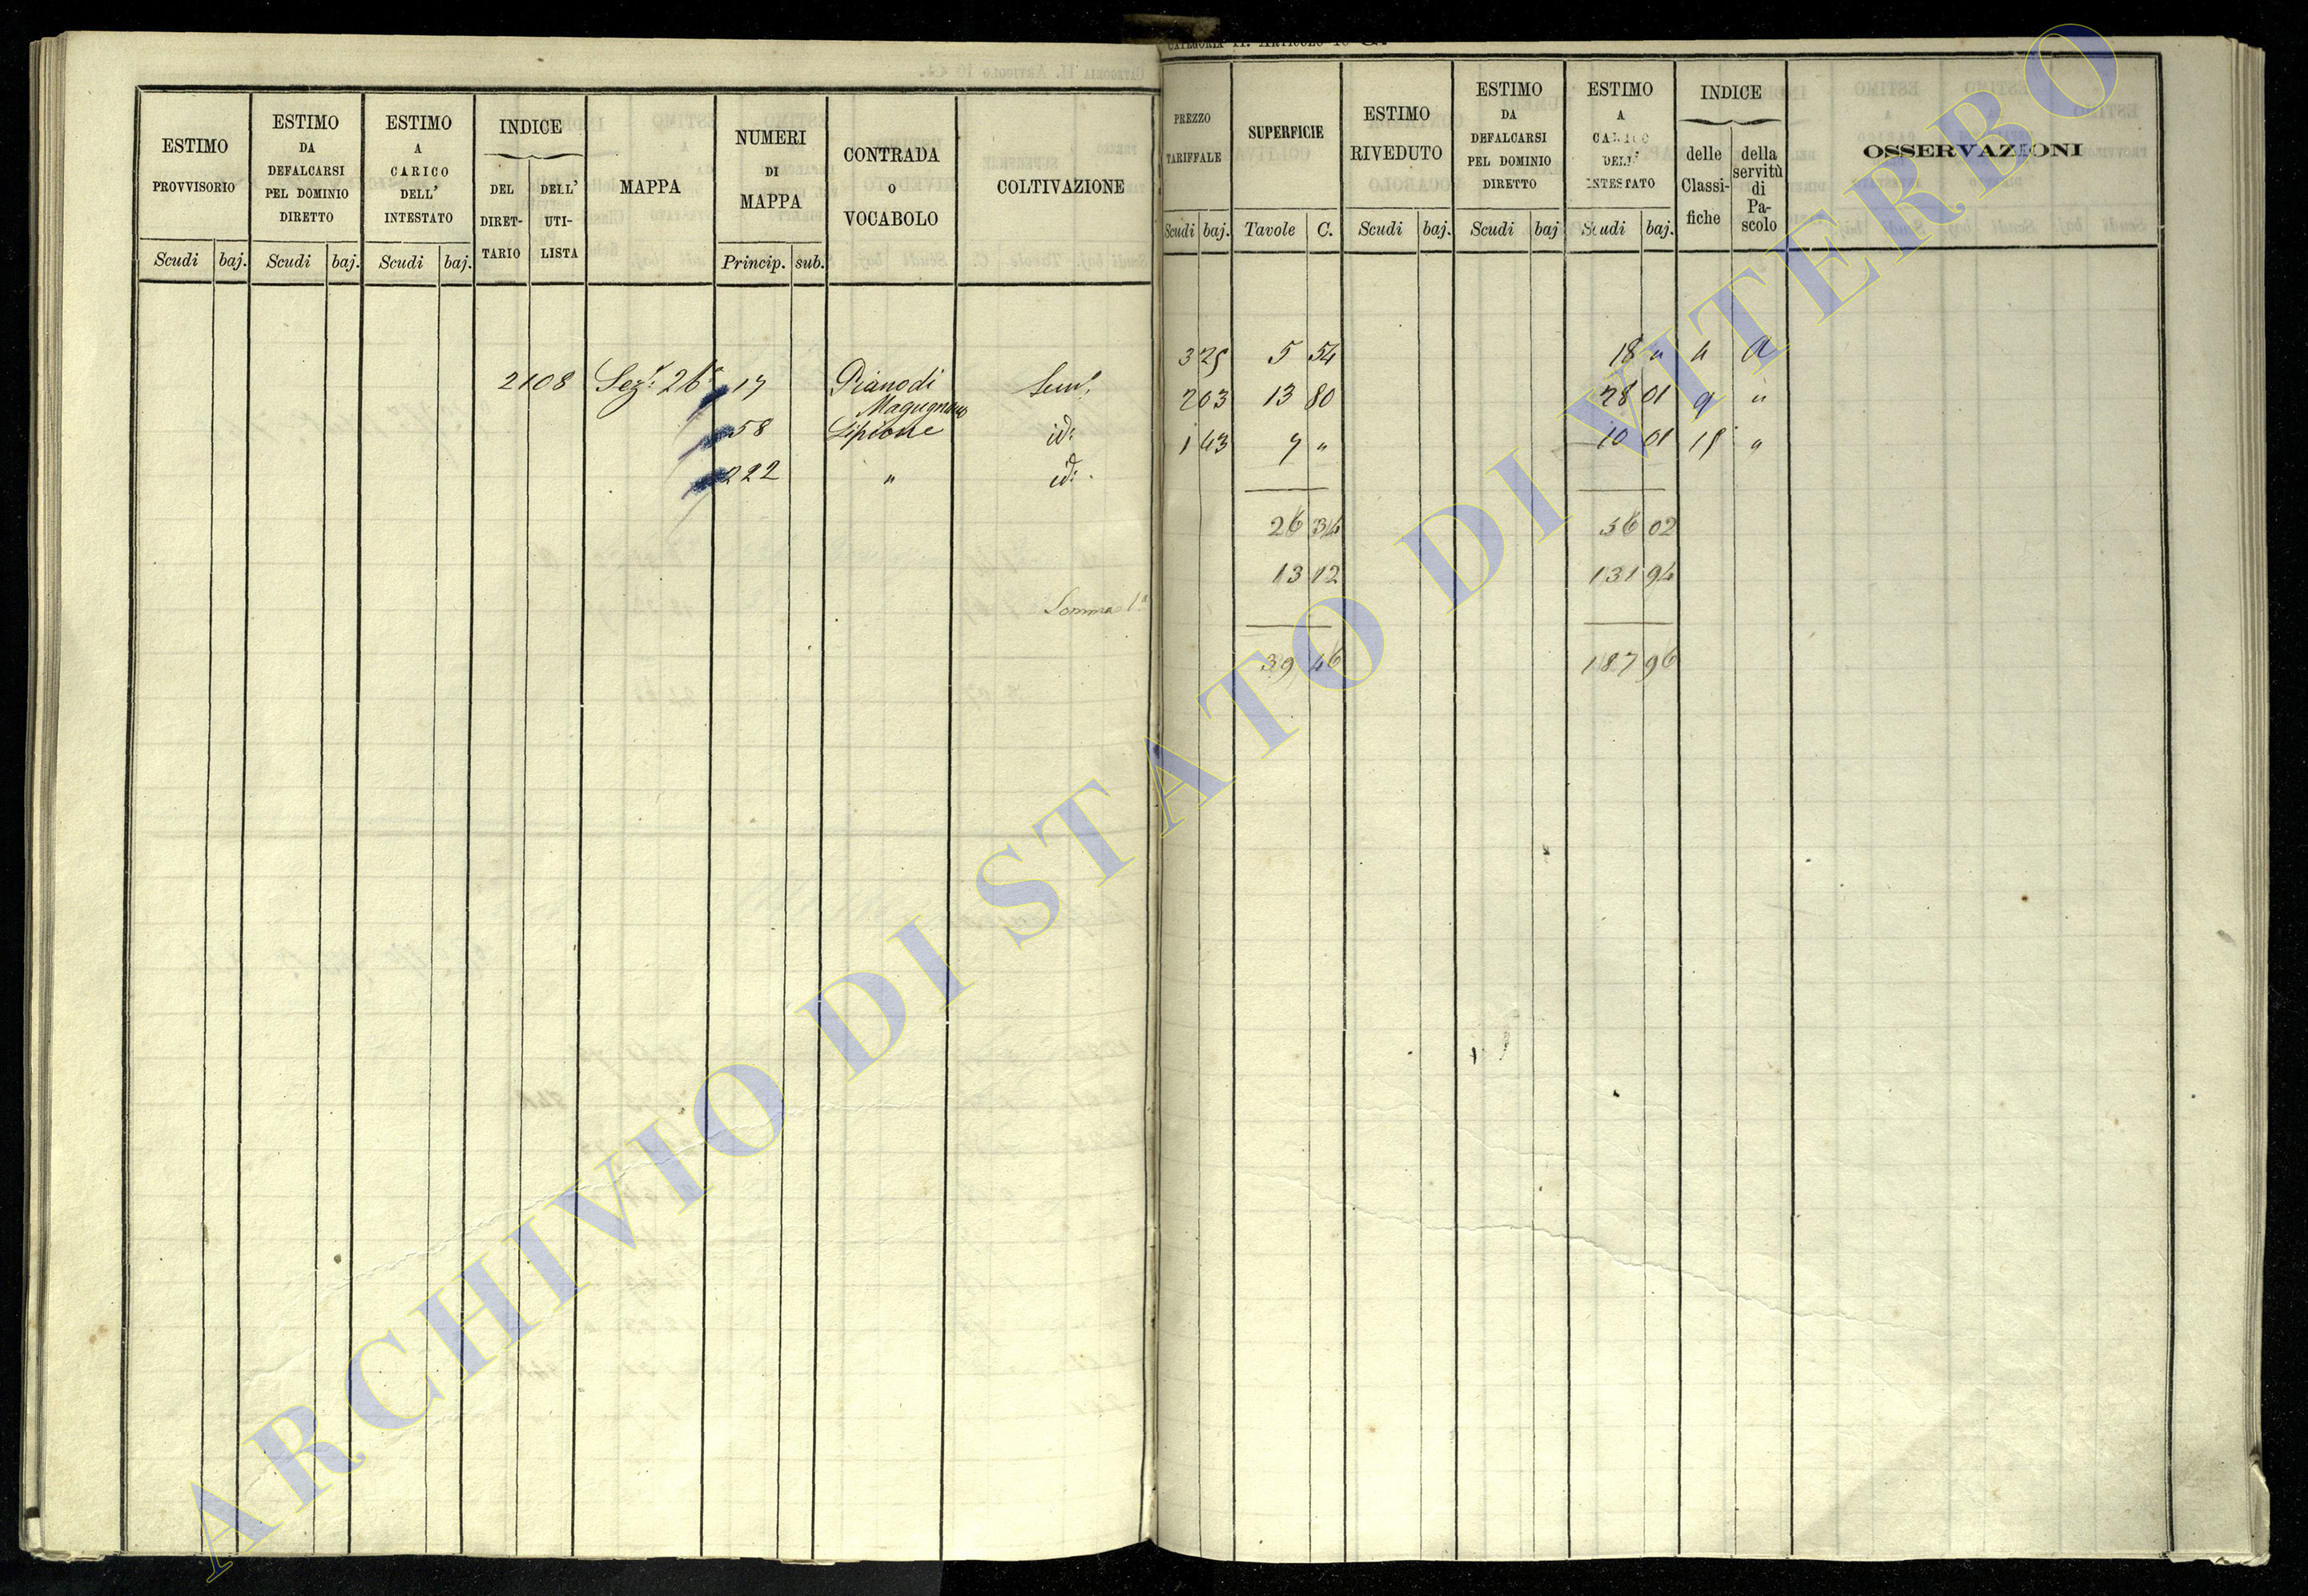 CATEGORIA II. ARTICOLO 16 G.
ESTIMO PROVVISORIO
ESTIMO DA DEFALCARSI PEL DOMINIO DIRETTO
ESTIMO A CARICO DELL' INTESTATO
INDICE
DEL DIRETTARIO
DELL' UTILISTA
MAPPA
NUMERI DI MAPPA
CONTRADA O VOCABOLO
COLTIVAZIONE
Scudi baj. Scudi baj. Scudi baj. Princip. sub.
2108 Sez: 26a 17 Piano di Magugnano Sem:
58 Scipione id:
222 " id:
Somma 1a
PREZZO TARIFFALE
SUPERFICIE
ESTIMO RIVEDUTO
ESTIMO DA DEFALCARSI PEL DOMINIO DIRETTO
ESTIMO A CARICO DELL' INTESTATO
INDICE
delle Classifiche
della servitù di Pascolo
OSSERVAZIONI
Scudi baj. Tavole C. Scudi baj. Scudi baj Scudi baj.
3 25 5 54 18 " a
2 03 13 80 28 01 9 "
1 43 7 " 10 01 15 "
26 34 56 02
13 12 131 94
39 46 187 96
ARCHIVIO DI STATO DI VITERBO